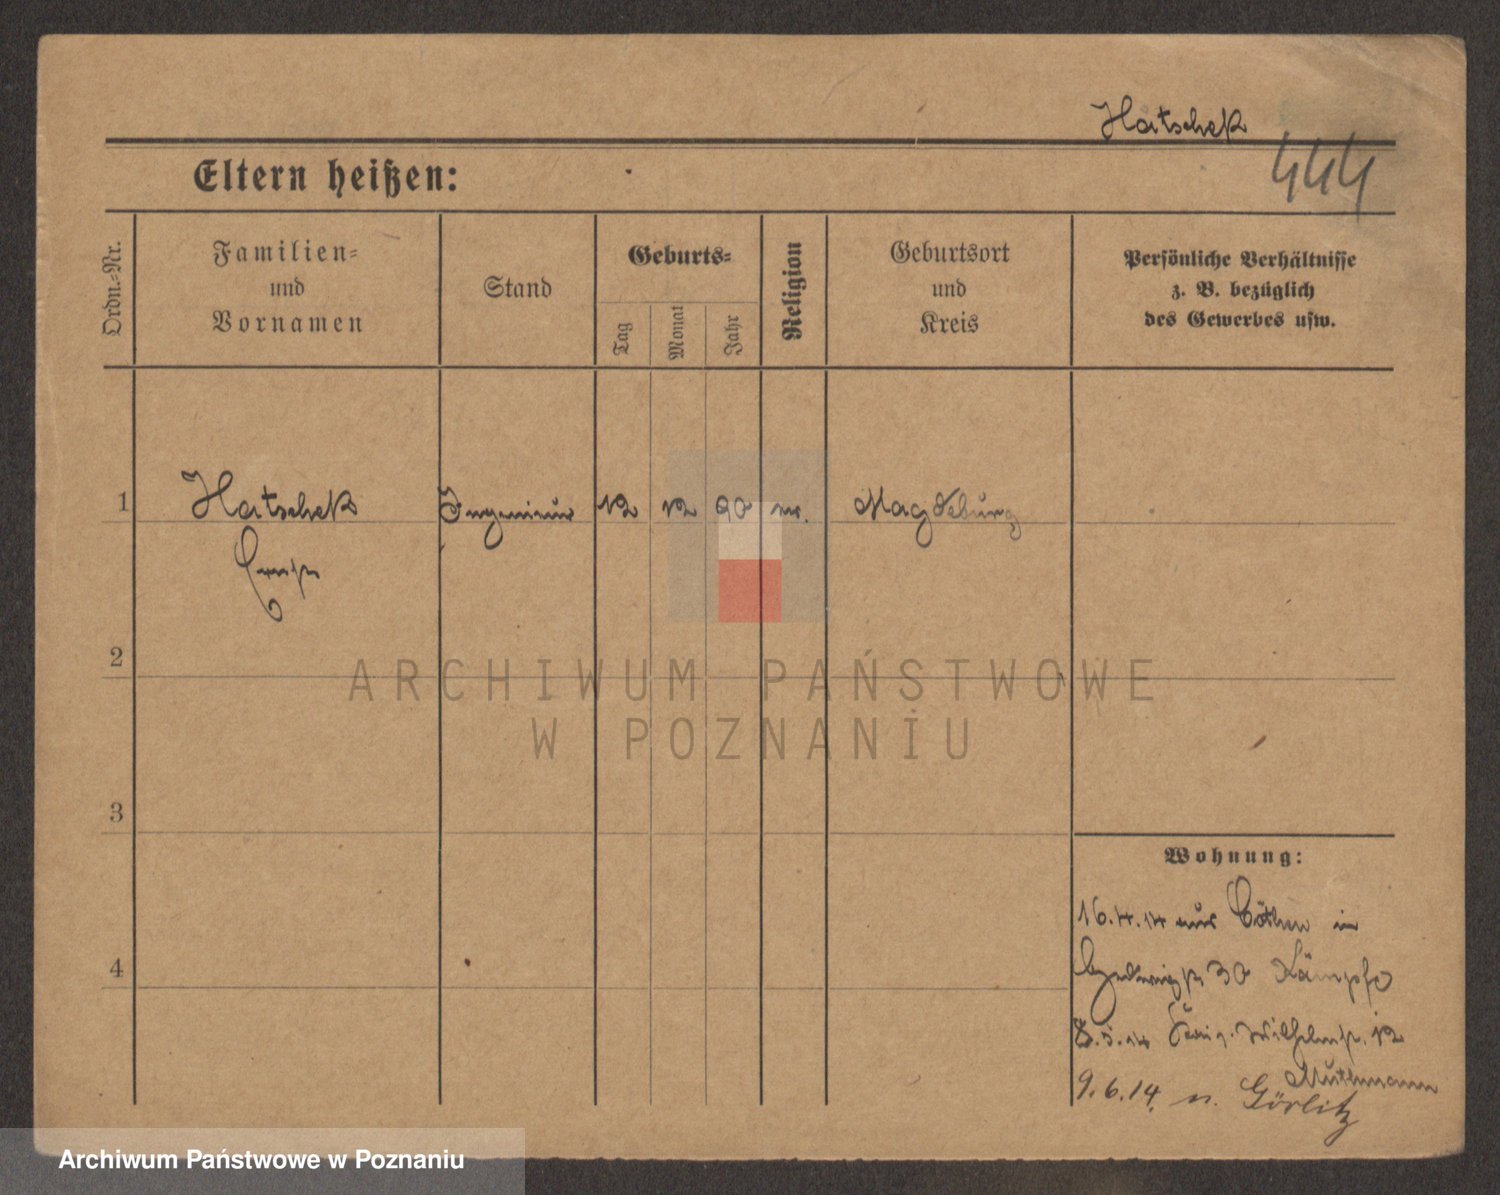 Hatschek
444
Eltern heißen:
Ordn.-Nr.
Familien-
und
Vornamen
Stand
Geburts-
Tag
Monat
Jahr
Religion
Geburtsort
und
Kreis
Persönliche Verhältnisse
z. B. bezüglich
des Gewerbes usw.
1 Hatschek Ingenieur 12 12 90 Magdeburg
Ernst
2
3
4
Wohnung:
16.4.14 aus Cöthen in
30 Kämpfe
8.5.14 Wilhelmstr. 12
Muthmann
9.6.14. n. Görlitz
ARCHIWUM PAŃSTWOWE
W POZNANIU
Archiwum Państwowe w Poznaniu